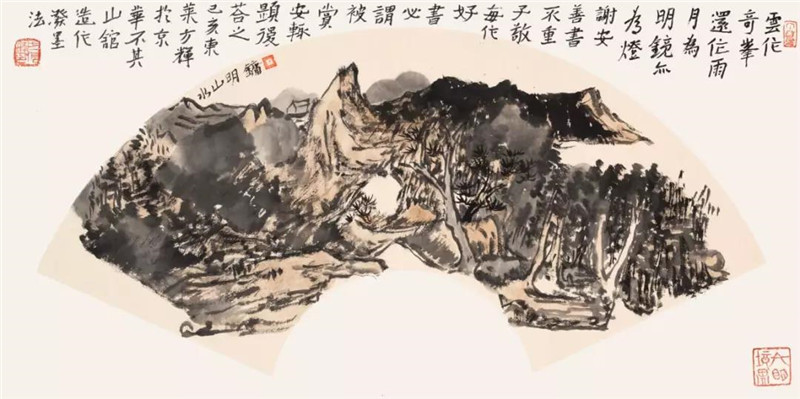 雲作
奇峯
還作雨
月為
明鏡亦
為燈
謝安
善書
不重
子敬
每作
好
書
必
謂
被
賞
安輒
題後
答之
己亥東
葉方輝
於京
華不其
山館
造作
潑墨
法
明山水